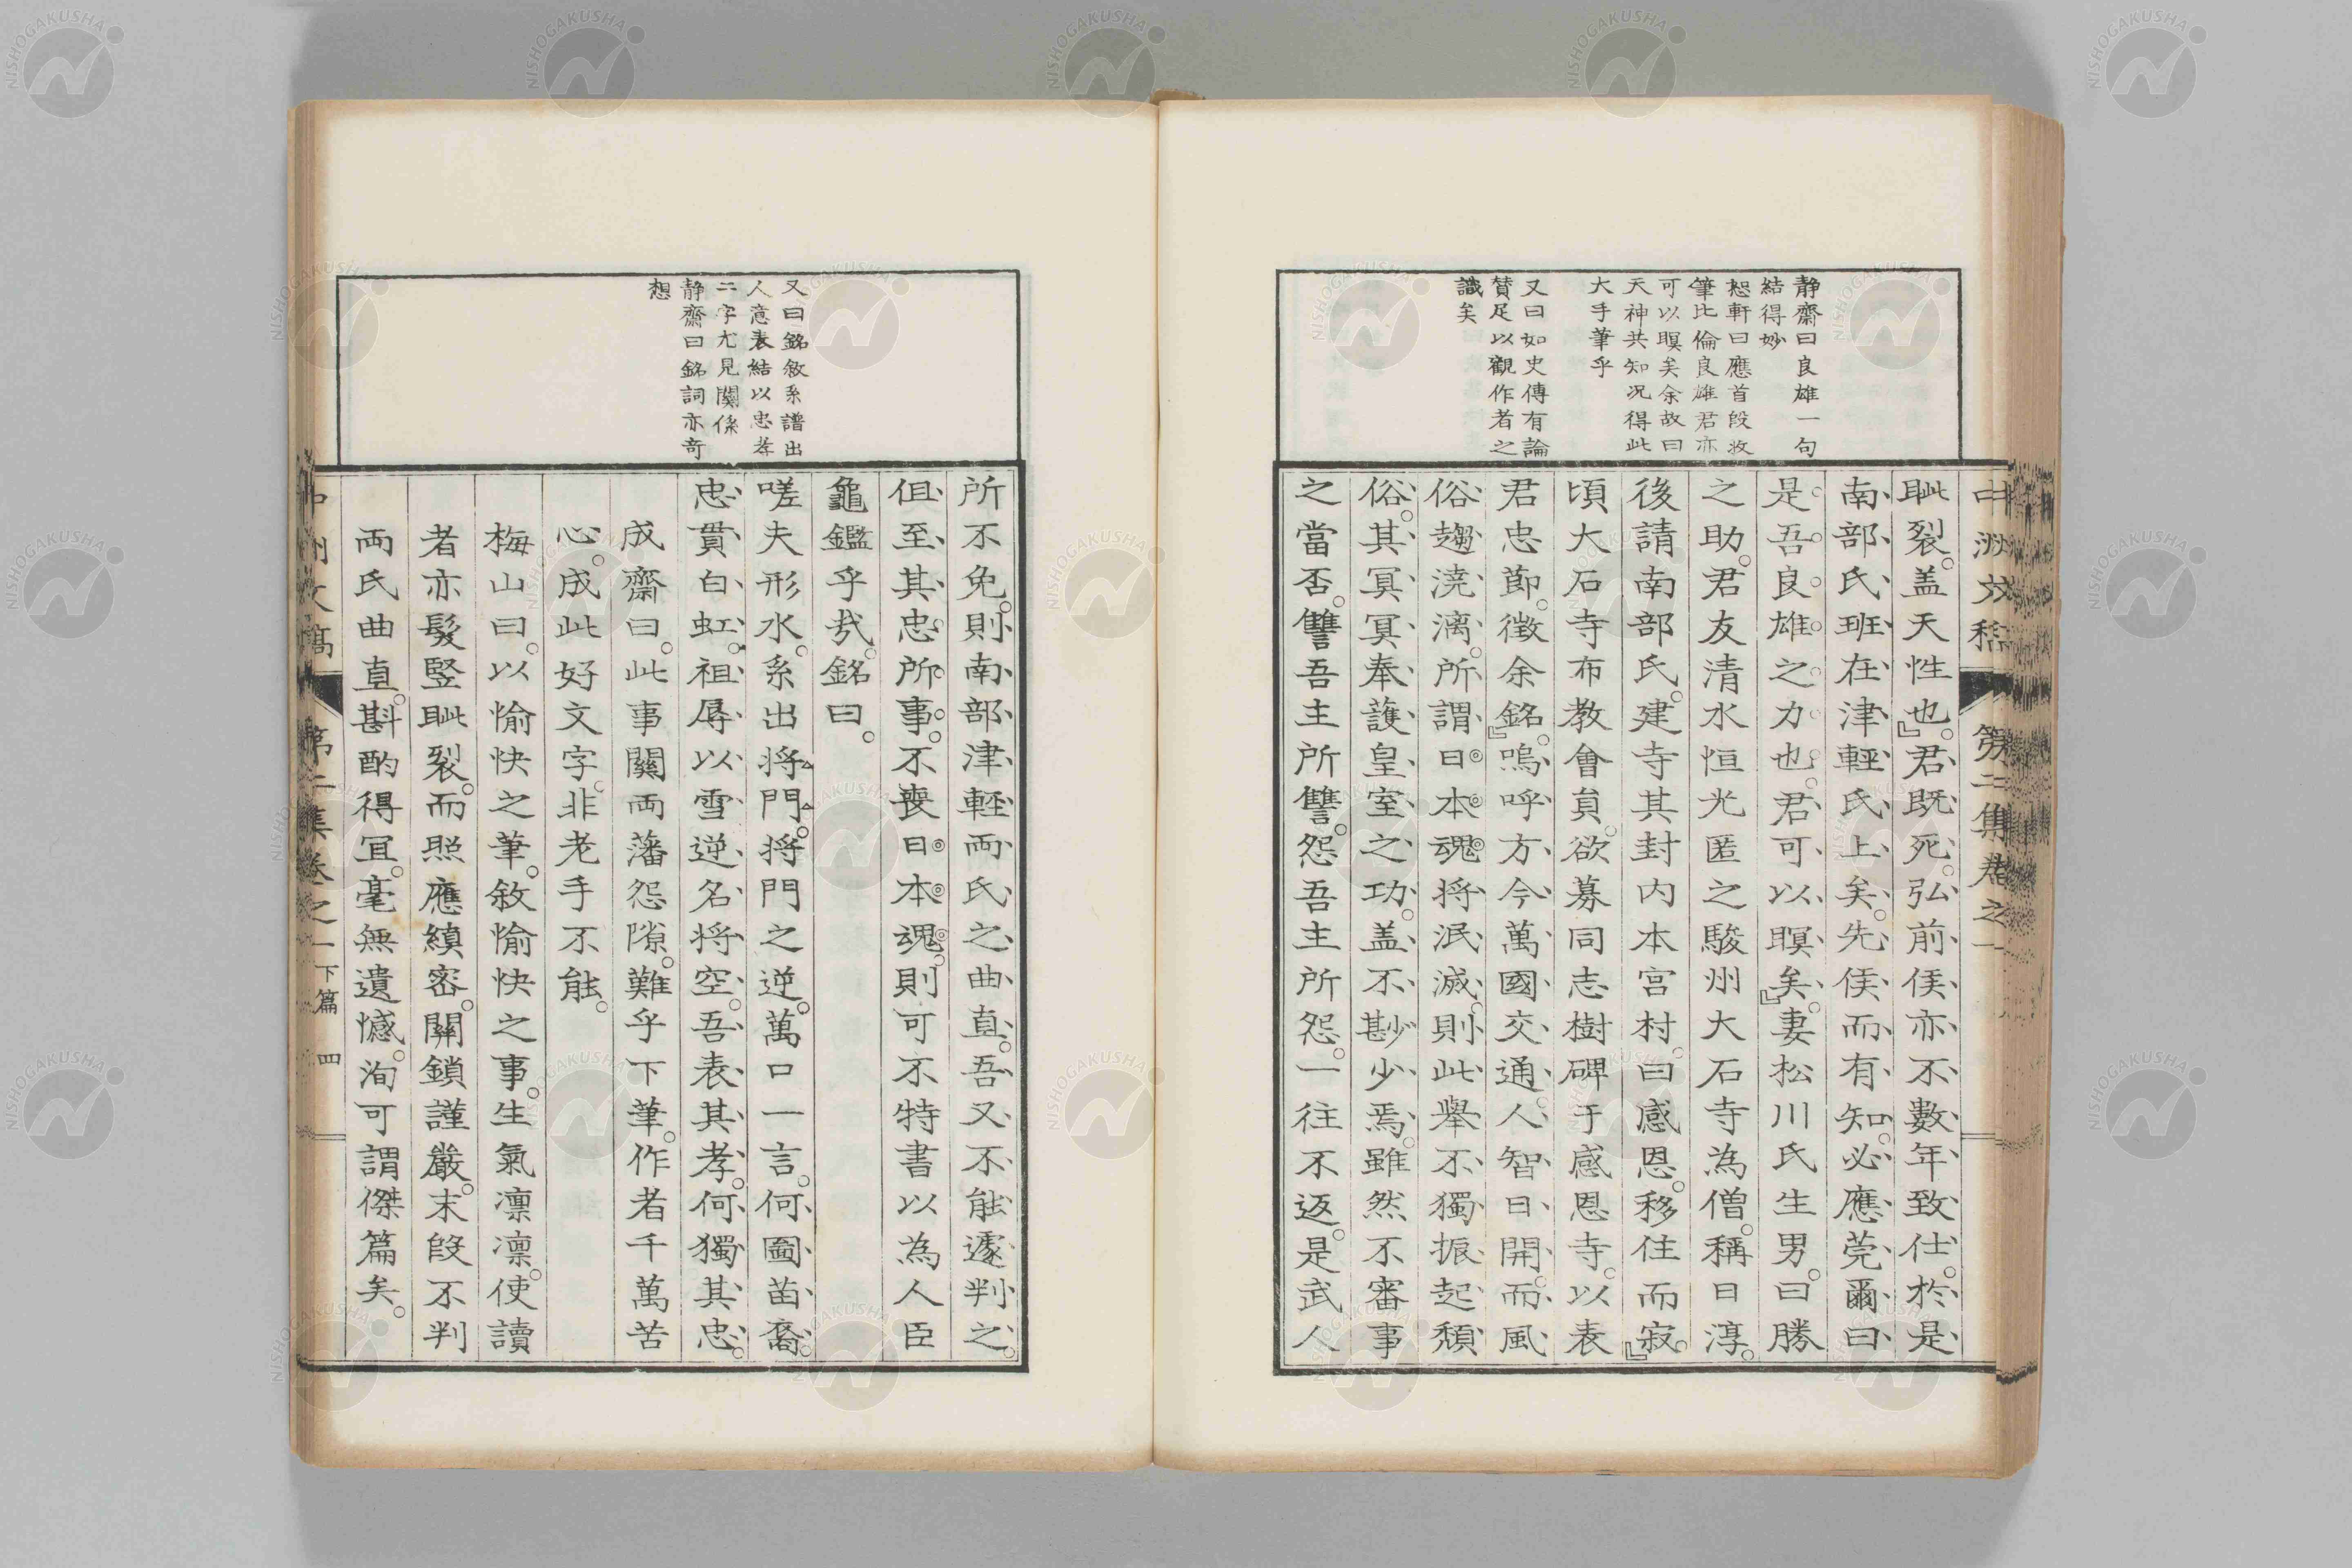 中洲文稿 第二集卷之一
静齋曰良雄一句
結得妙
恕軒曰應首段收
筆比倫良雄君亦
可以瞑矣余故曰
天神共知况得此
大手筆乎
又曰如史傳有論
賛足以觀作者之
識矣
眦裂。盖天性也。』君既死。弘前侯亦不數年致仕。於是
南部氏班在津輕氏上矣。先侯而有知。必應莞爾曰
是吾良雄之力也。君可以瞑矣。』妻松川氏生男。曰勝
之助。君友清水恒光匿之駿州大石寺為僧。稱日淳。
後請南部氏。建寺其封内本宮村。曰感恩。移住而寂。』
頃大石寺布教會員。欲募同志樹碑于感恩寺。以表
君忠節。徵余銘。』嗚呼方今萬國交通。人智日開。而風
俗趨澆漓。所謂日本魂將泯滅。則此舉不獨振起頹
俗。其冥冥奉護皇室之功。盖不尠少焉。雖然不審事
之當否。讐吾主所讐。怨吾主所怨。一往不返。是武人
又曰銘敘系譜出
人意表結以忠孝
二字尤見關係
静齋曰銘詞亦奇
想
所不免。則南部津輕両氏之曲直。吾又不能遽判之。
但至其忠所事。不喪日本魂。則可不特書以為人臣
龜鑑乎哉。銘曰。
嗟夫形水。系出将門。将門之逆。萬口一言。何圖苗裔。
忠貫白虹。祖辱以雪逆名将空。吾表其孝。何獨其忠。
成齋曰。此事關両藩怨隙。難乎下筆。作者千萬苦
心。成此好文字。非老手不能。
梅山曰。以愉快之筆。敘愉快之事。生氣凛凛。使讀
者亦髮竪眦裂。而照應縝密。關鎖謹嚴。末段不判
両氏曲直。斟酌得宜。毫無遺憾。洵可謂傑篇矣。
中洲文稿 第二集卷之一 下篇 四